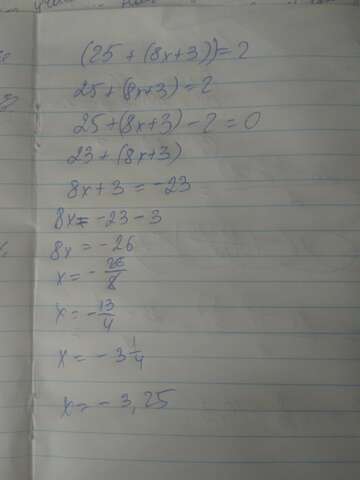 (25 + (8x+3))=2
25+(8x+3)=2
25+(8x+3)-2=0
23+(8x+3)
8x+3=-23
8x=-23-3
8x=-26
x=-26/8
x=-13/4
x=-3 1/4
x=-3,25